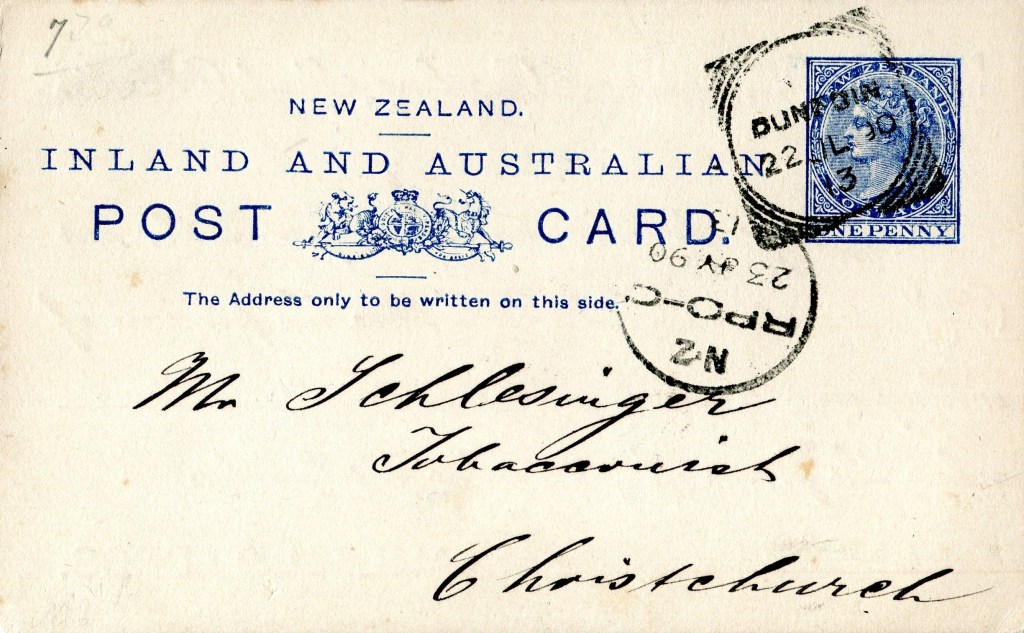 7
NEW ZEALAND.
INLAND AND AUSTRALIAN
POST CARD.
The Address only to be written on this side.
NEW ZEALAND
ONE PENNY
DUNEDIN
22 JL 90
13
23 JY 90
RPO-C
NZ
Mr Schlesinger
Tobacconist
Christchurch